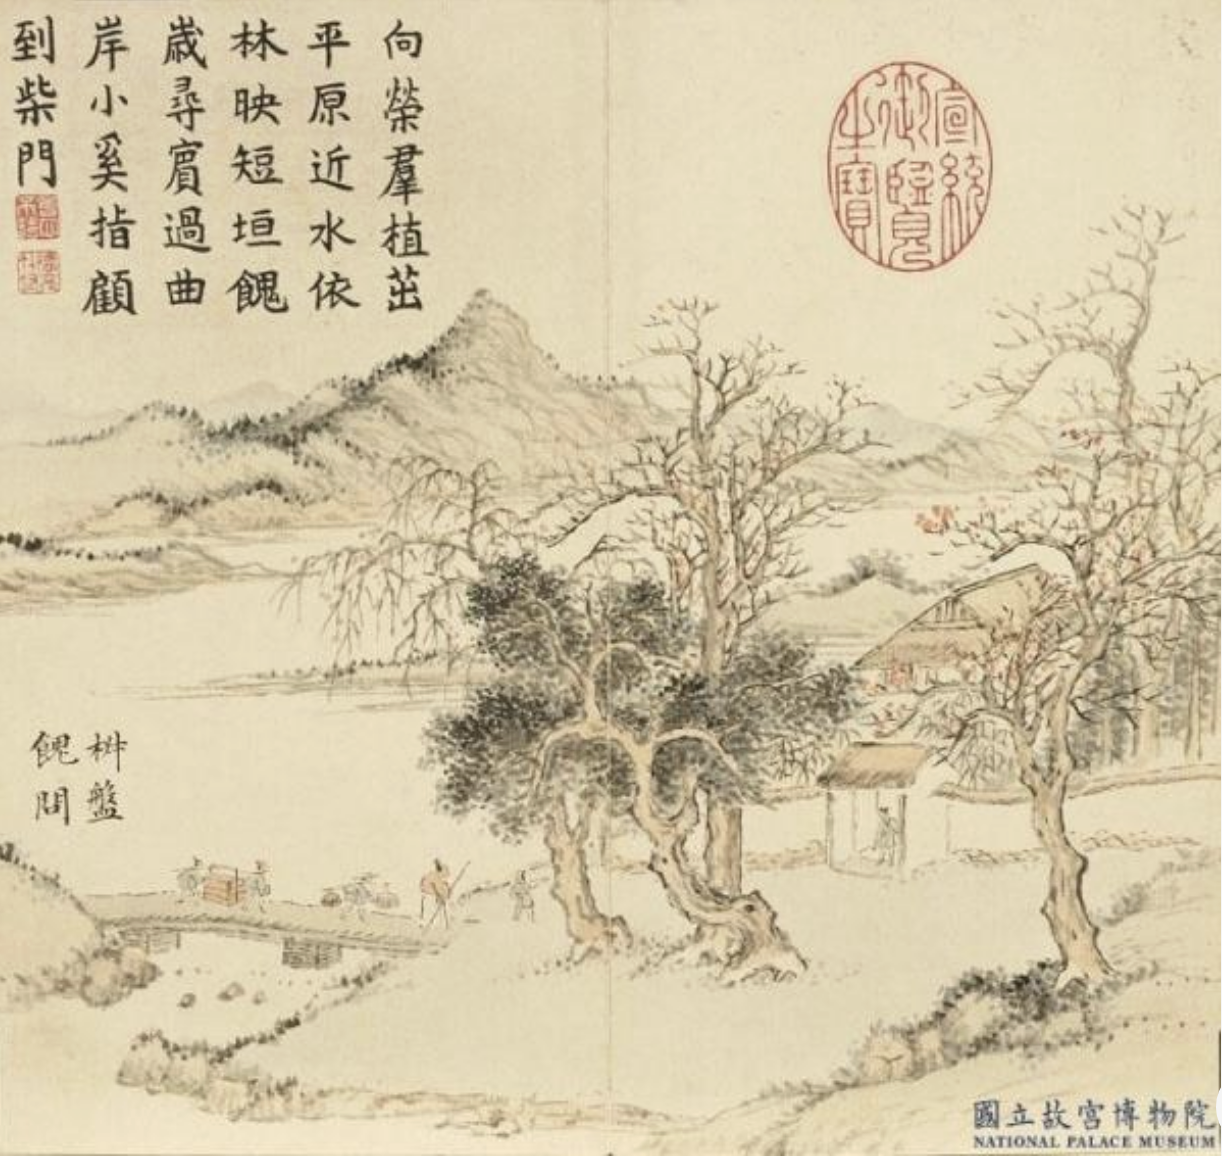 宣統
御覽
之寶
向榮羣植茁
平原近水依
林映短垣餽
嵗尋賓過曲
岸小奚指顧
到柴門
椒盤
餽問
國立故宮博物院
NATIONAL PALACE MUSEUM